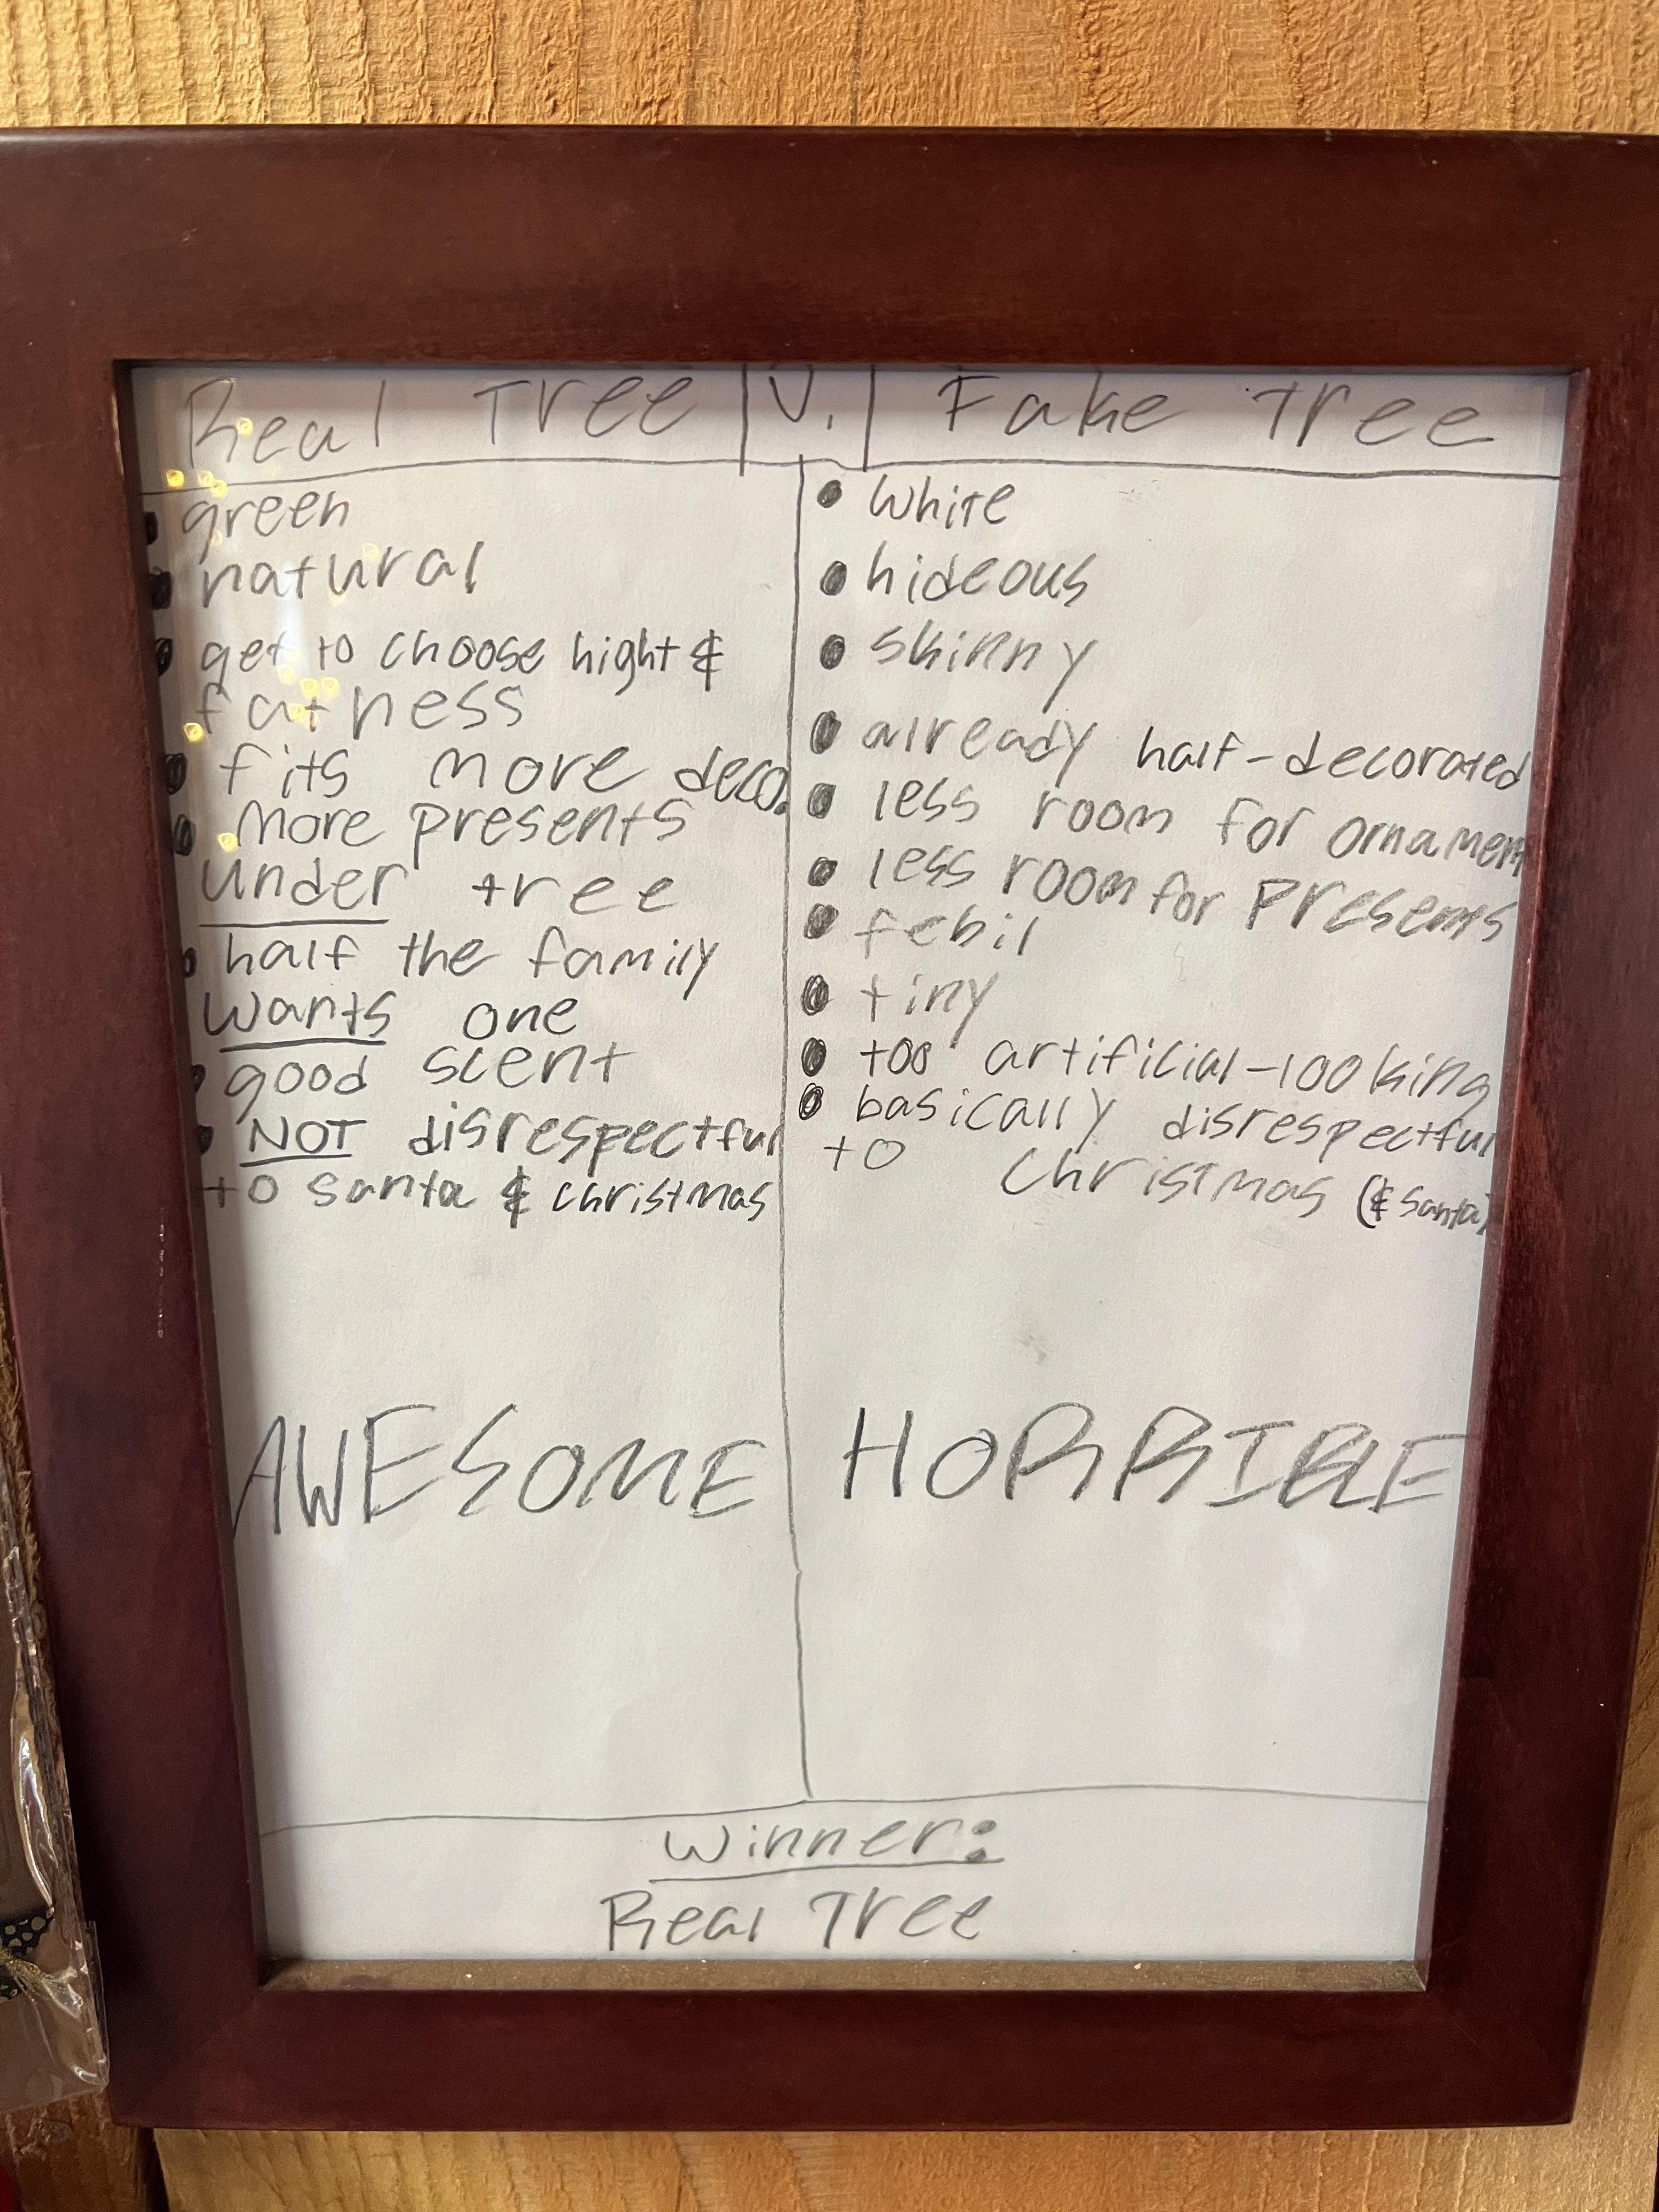 Real Tree V. Fake Tree
• green
• natural
• get to choose hight &
fatness
• fits more deco.
• more presents
under tree
• half the family
wants one
• good scent
• NOT disrespectful
to santa & christmas
AWESOME
• white
• hideous
• skinny
• already half-decorated
• less room for ornament
• less room for presents
• febil
• tiny
• too artificial-looking
• basically disrespectful
to Christmas (& Santa)
HORRIBLE
Winner:
Real Tree